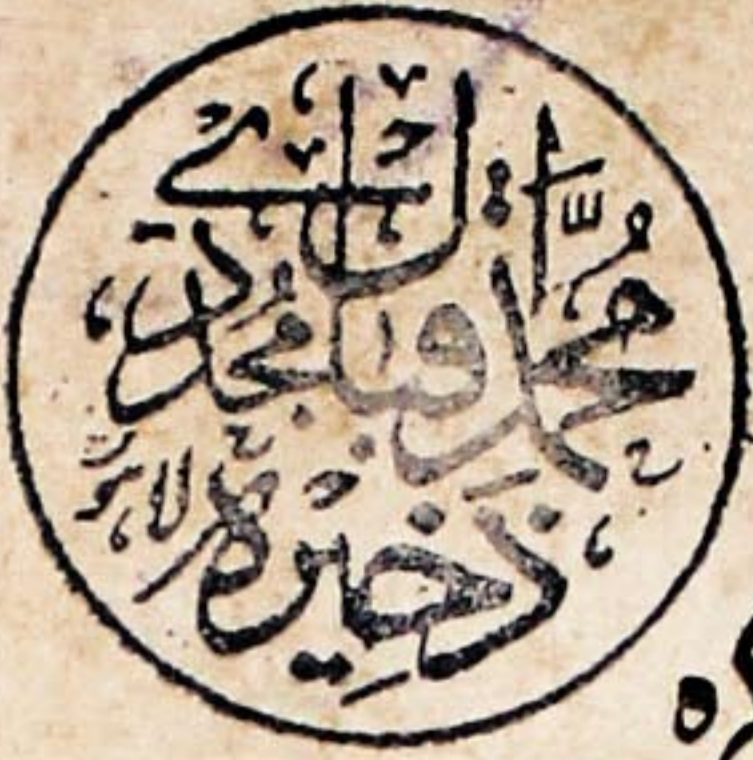 ذخیرہ
محمّد اقبال مجددی
لاہور